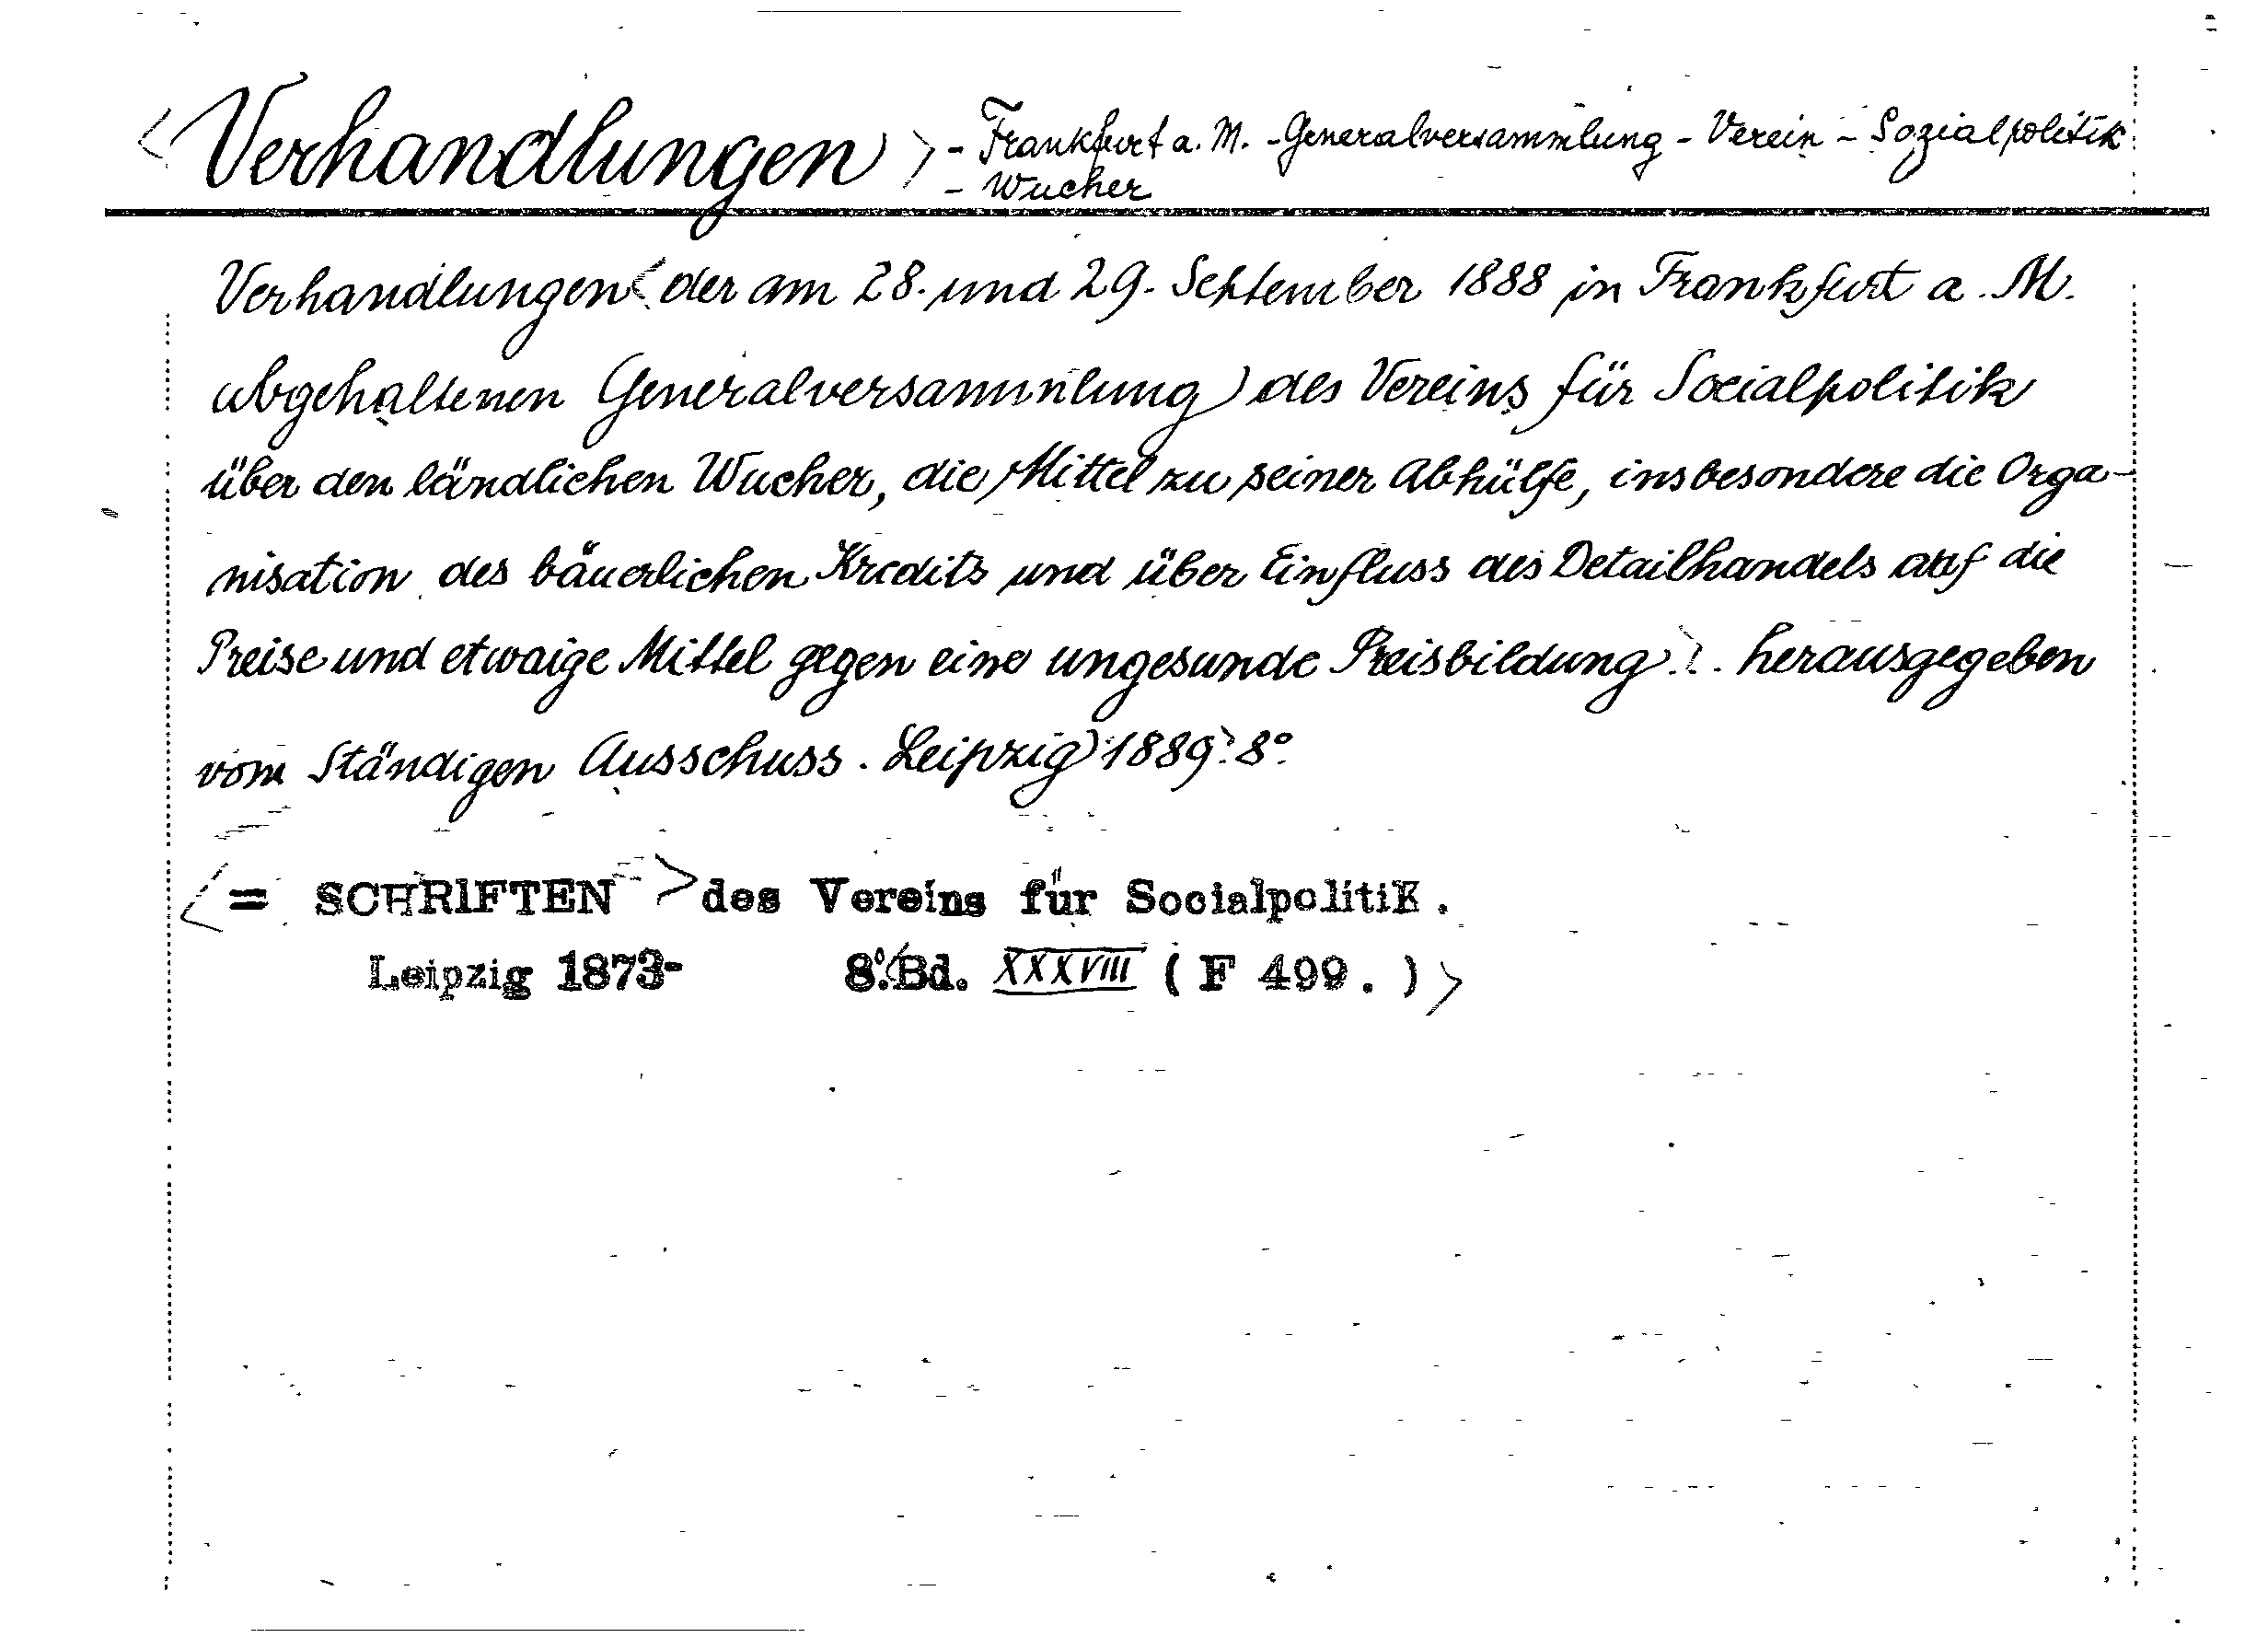 <Verhandlungen> - Frankfurt a. M. - Generalversammlung - Verein - Sozialpolitik
- Wucher
Verhandlungen <der am 28. und 29. September 1888 in Frankfurt a. M.
abgehaltenen Generalversammlung> des Vereins für Socialpolitik
über den ländlichen Wucher, die Mittel zu seiner Abhülfe, insbesondere die Orga-
nisation des bäuerlichen Kredits und über Einfluss des Detailhandels auf die
Preise und etwaige Mittel gegen eine ungesunde Preisbildung>. herausgegeben
vom Ständigen Ausschuss. Leipzig 1889. 8°.
<= SCHRIFTEN > des Vereins für Socialpolitik.
Leipzig 1873- 8°.<Bd. XXXVIII (F 499.)>